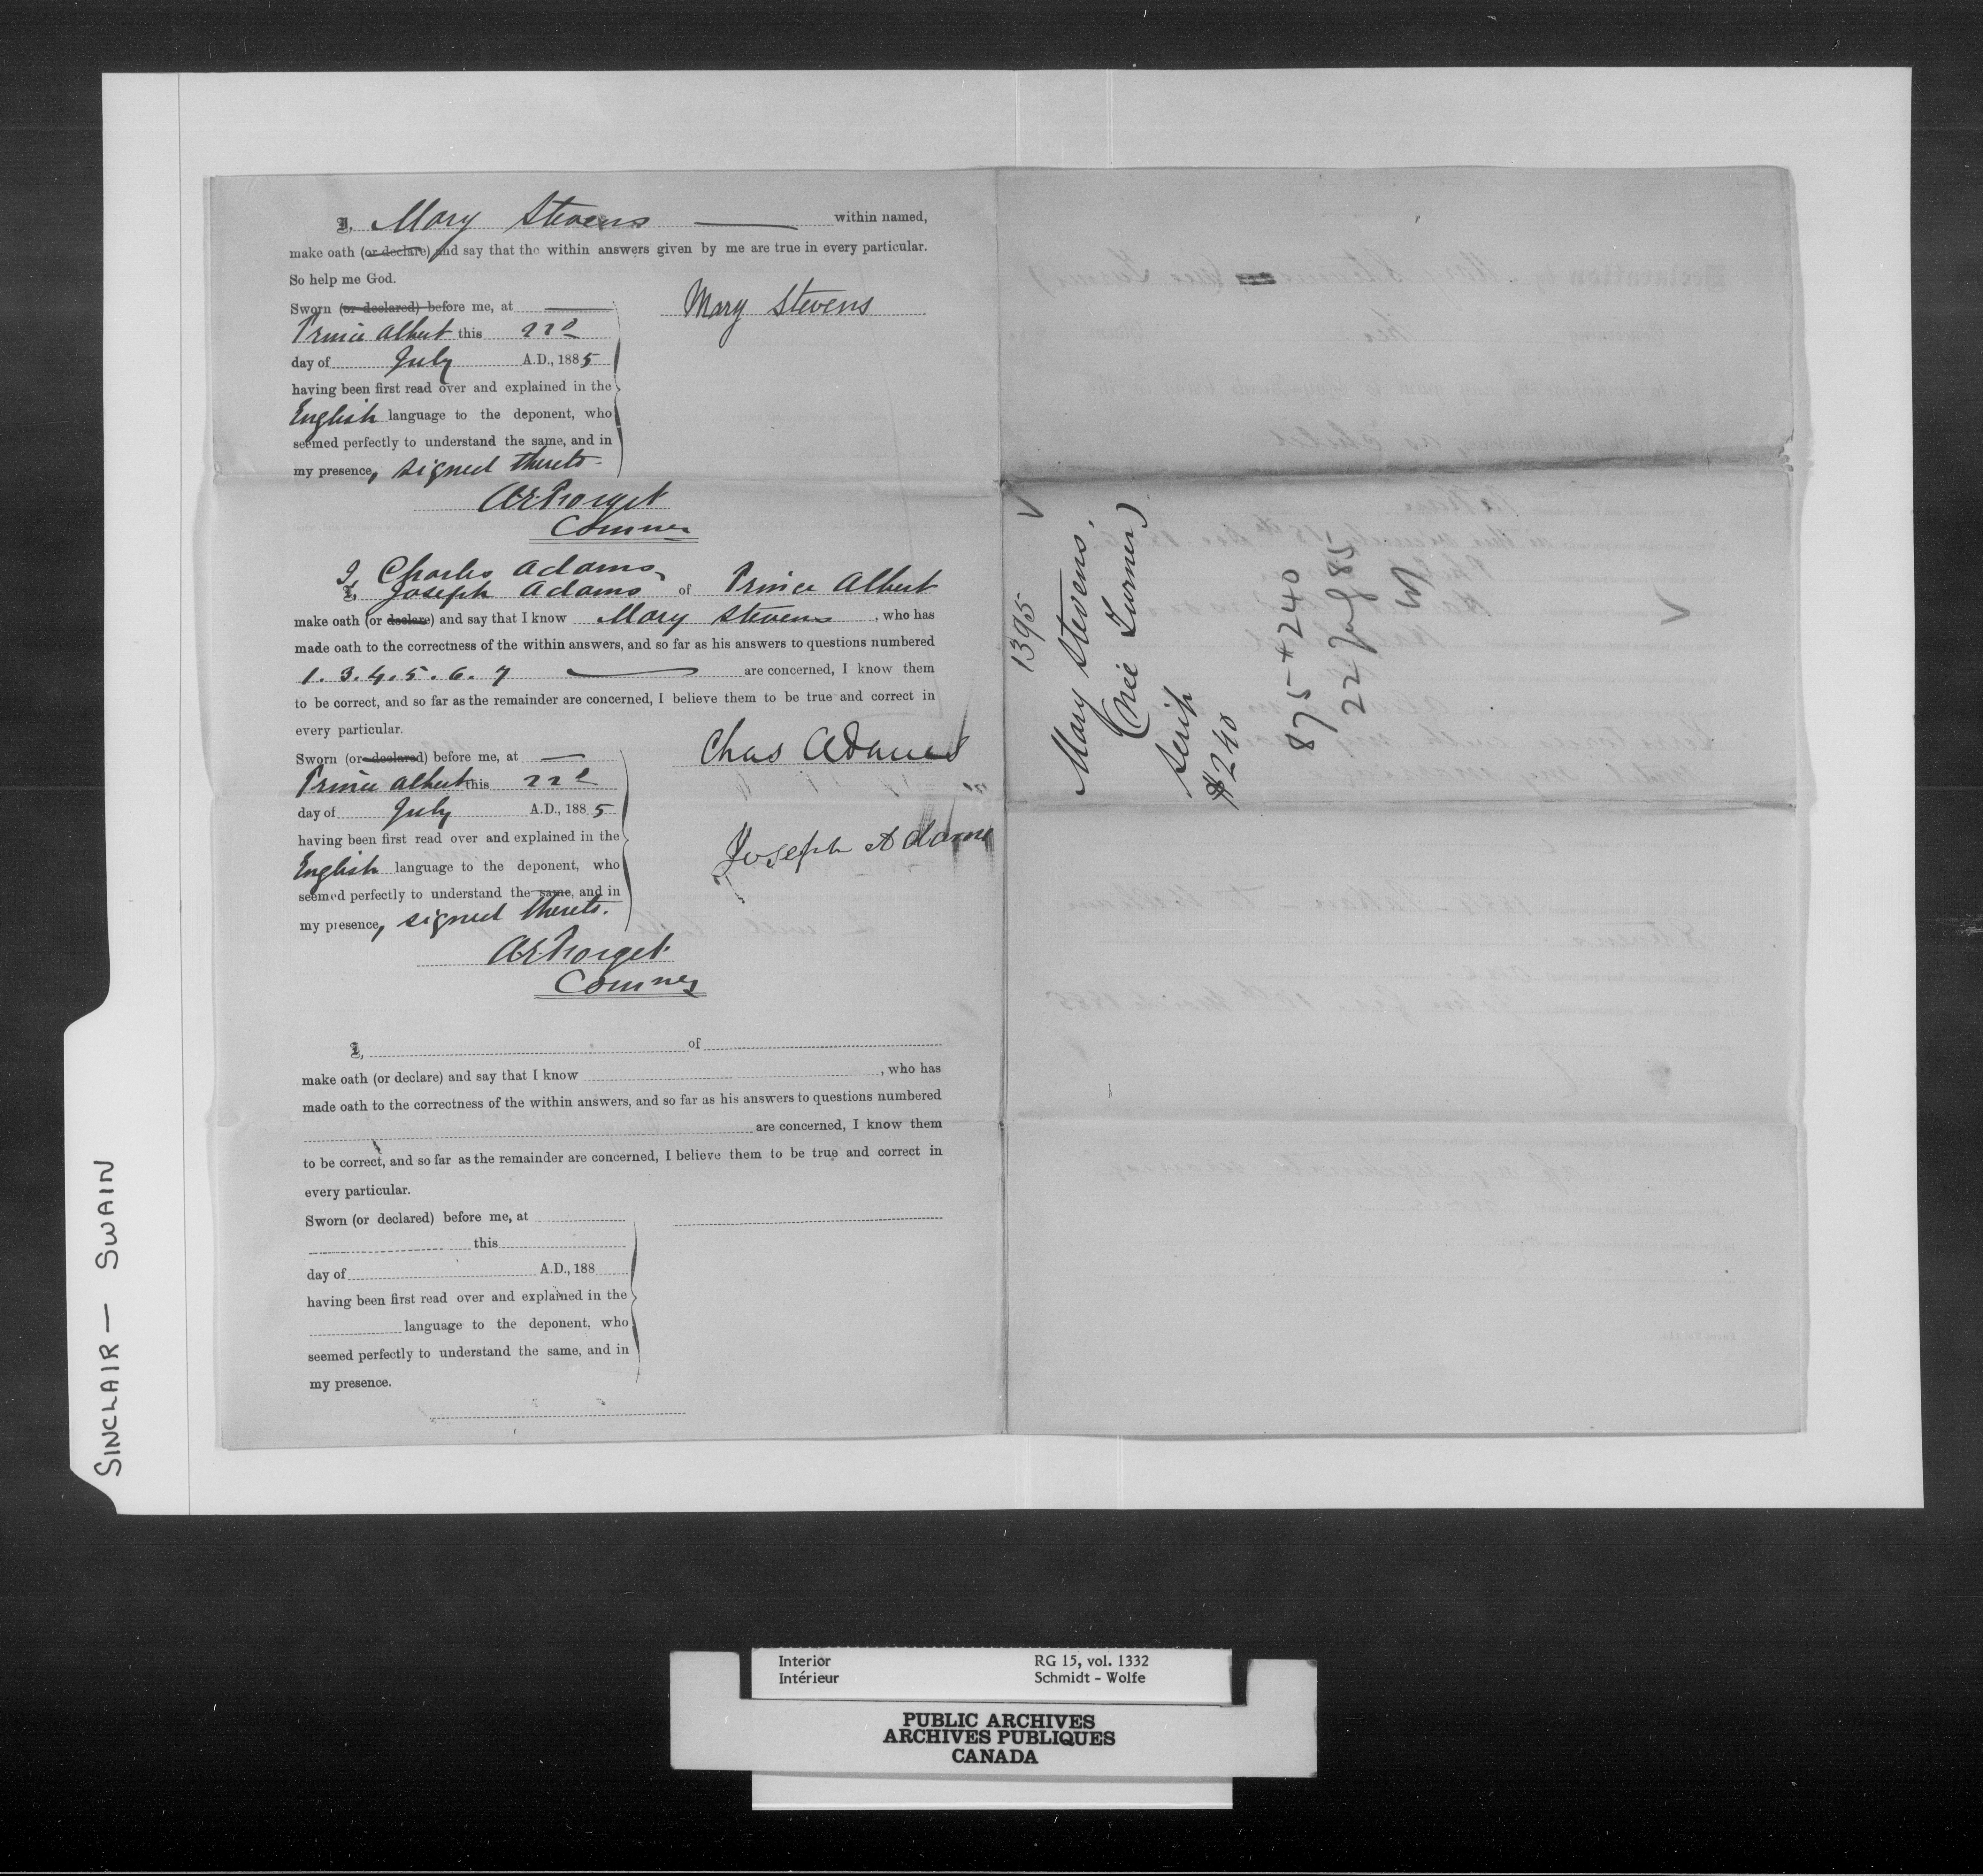 I, Mary Stevens within named,
make oath (or declare) and say that the within answers given by me are true in every particular.
So help me God.
Sworn (or declared) before me, at
Prince Albert this 22d
day of July A.D., 1885
having been first read over and explained in the
English language to the deponent, who
seemed perfectly to understand the same, and in
my presence, signed thereto.
Mary Stevens
A.E. Forget
Commr
I, Charles Adams
I, Joseph Adams of Prince Albert
make oath (or declare) and say that I know Mary Stevens, who has
made oath to the correctness of the within answers, and so far as his answers to questions numbered
1. 3. 4. 5. 6. 7 are concerned, I know them
to be correct, and so far as the remainder are concerned, I believe them to be true and correct in
every particular.
Sworn (or declared) before me, at
Prince Albert this 22d
day of July A.D., 1885
having been first read over and explained in the
English language to the deponent, who
seemed perfectly to understand the same, and in
my presence, signed thereto.
Chas Adams
Joseph Adams
A.E. Forget
Commr
I, of
make oath (or declare) and say that I know , who has
made oath to the correctness of the within answers, and so far as his answers to questions numbered
are concerned, I know them
to be correct, and so far as the remainder are concerned, I believe them to be true and correct in
every particular.
Sworn (or declared) before me, at
this
day of A.D., 188
having been first read over and explained in the
language to the deponent, who
seemed perfectly to understand the same, and in
my presence.
1395
Mary Stevens.
(née Turner)
Scrip
$240
875 *240
22 July 85
SINCLAIR — SWAIN
Interior RG 15, vol. 1332
Intérieur Schmidt - Wolfe
PUBLIC ARCHIVES
ARCHIVES PUBLIQUES
CANADA